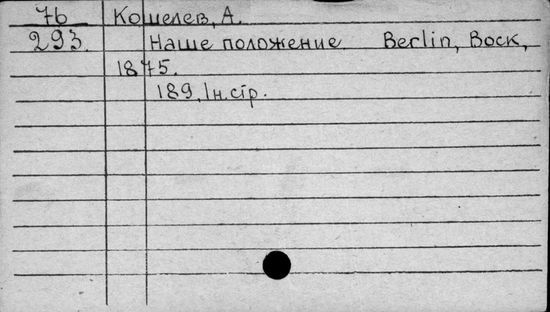 7b Кошелев, А.
293. Наше положение. Berlin, Bock,
1875.
189, Iн. стр.